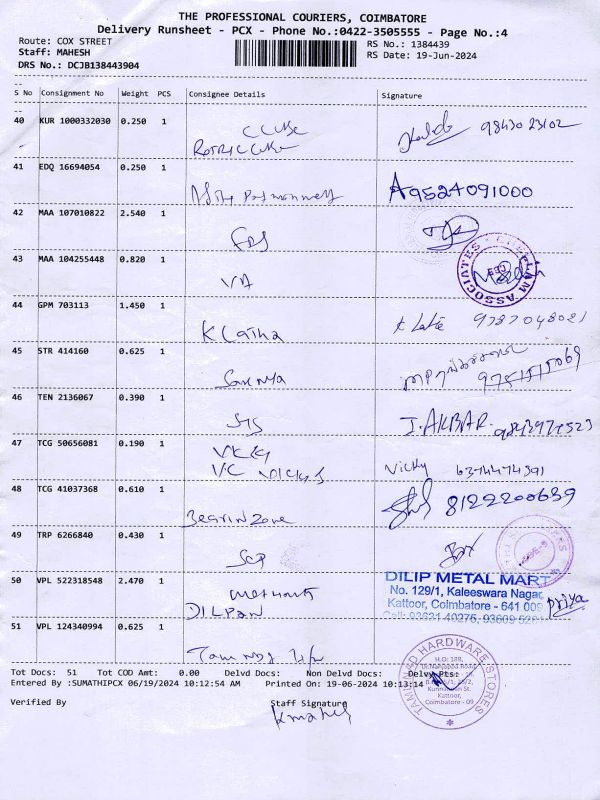 THE PROFESSIONAL COURIERS, COIMBATORE
Delivery Runsheet - PCX - Phone No.:0422-3505555 - Page No.:4
Route: COX STREET
Staff: MAHESH
DRS No.: DCJB138443904
RS No.: 1384439
RS Date: 19-Jun-2024
S No Consignment No Weight PCS Consignee Details Signature
40 KUR 1000332030 0.250 1
98430 23102
41 EDQ 16694054 0.250 1
A9524091000
42 MAA 107010822 2.540 1
43 MAA 104255448 0.820 1
VA
ASSOCIATES
44 GPM 703113 1.450 1
K Latha
9787048021
45 STR 414160 0.625 1
Saranya
46 TEN 2136067 0.390 1
STS
J. AKBAR.
47 TCG 50656081 0.190 1
Vicky
VC VICKYS
Vicky 6374474391
48 TCG 41037368 0.610 1
Bearin Zone
8122200639
49 TRP 6266840 0.430 1
SCP
50 VPL 522318548 2.470 1
DILPAN
DILIP METAL MART
No. 129/1, Kaleeswara Nagar,
Kattoor, Coimbatore - 641 009
Cell: 93631 40276, 93609
Priya
51 VPL 124340994 0.625 1
TAMILNAD HARDWARE STORES
H.O: 188,
Dr.Nanjappa Road
Kattoor,
Coimbatore - 09
Tot Docs: 51 Tot COD Amt: 0.00 Delvd Docs: Non Delvd Docs: Delvy Pts:
Entered By :SUMATHIPCX 06/19/2024 10:12:54 AM Printed On: 19-06-2024 10:13:14
Verified By Staff Signature